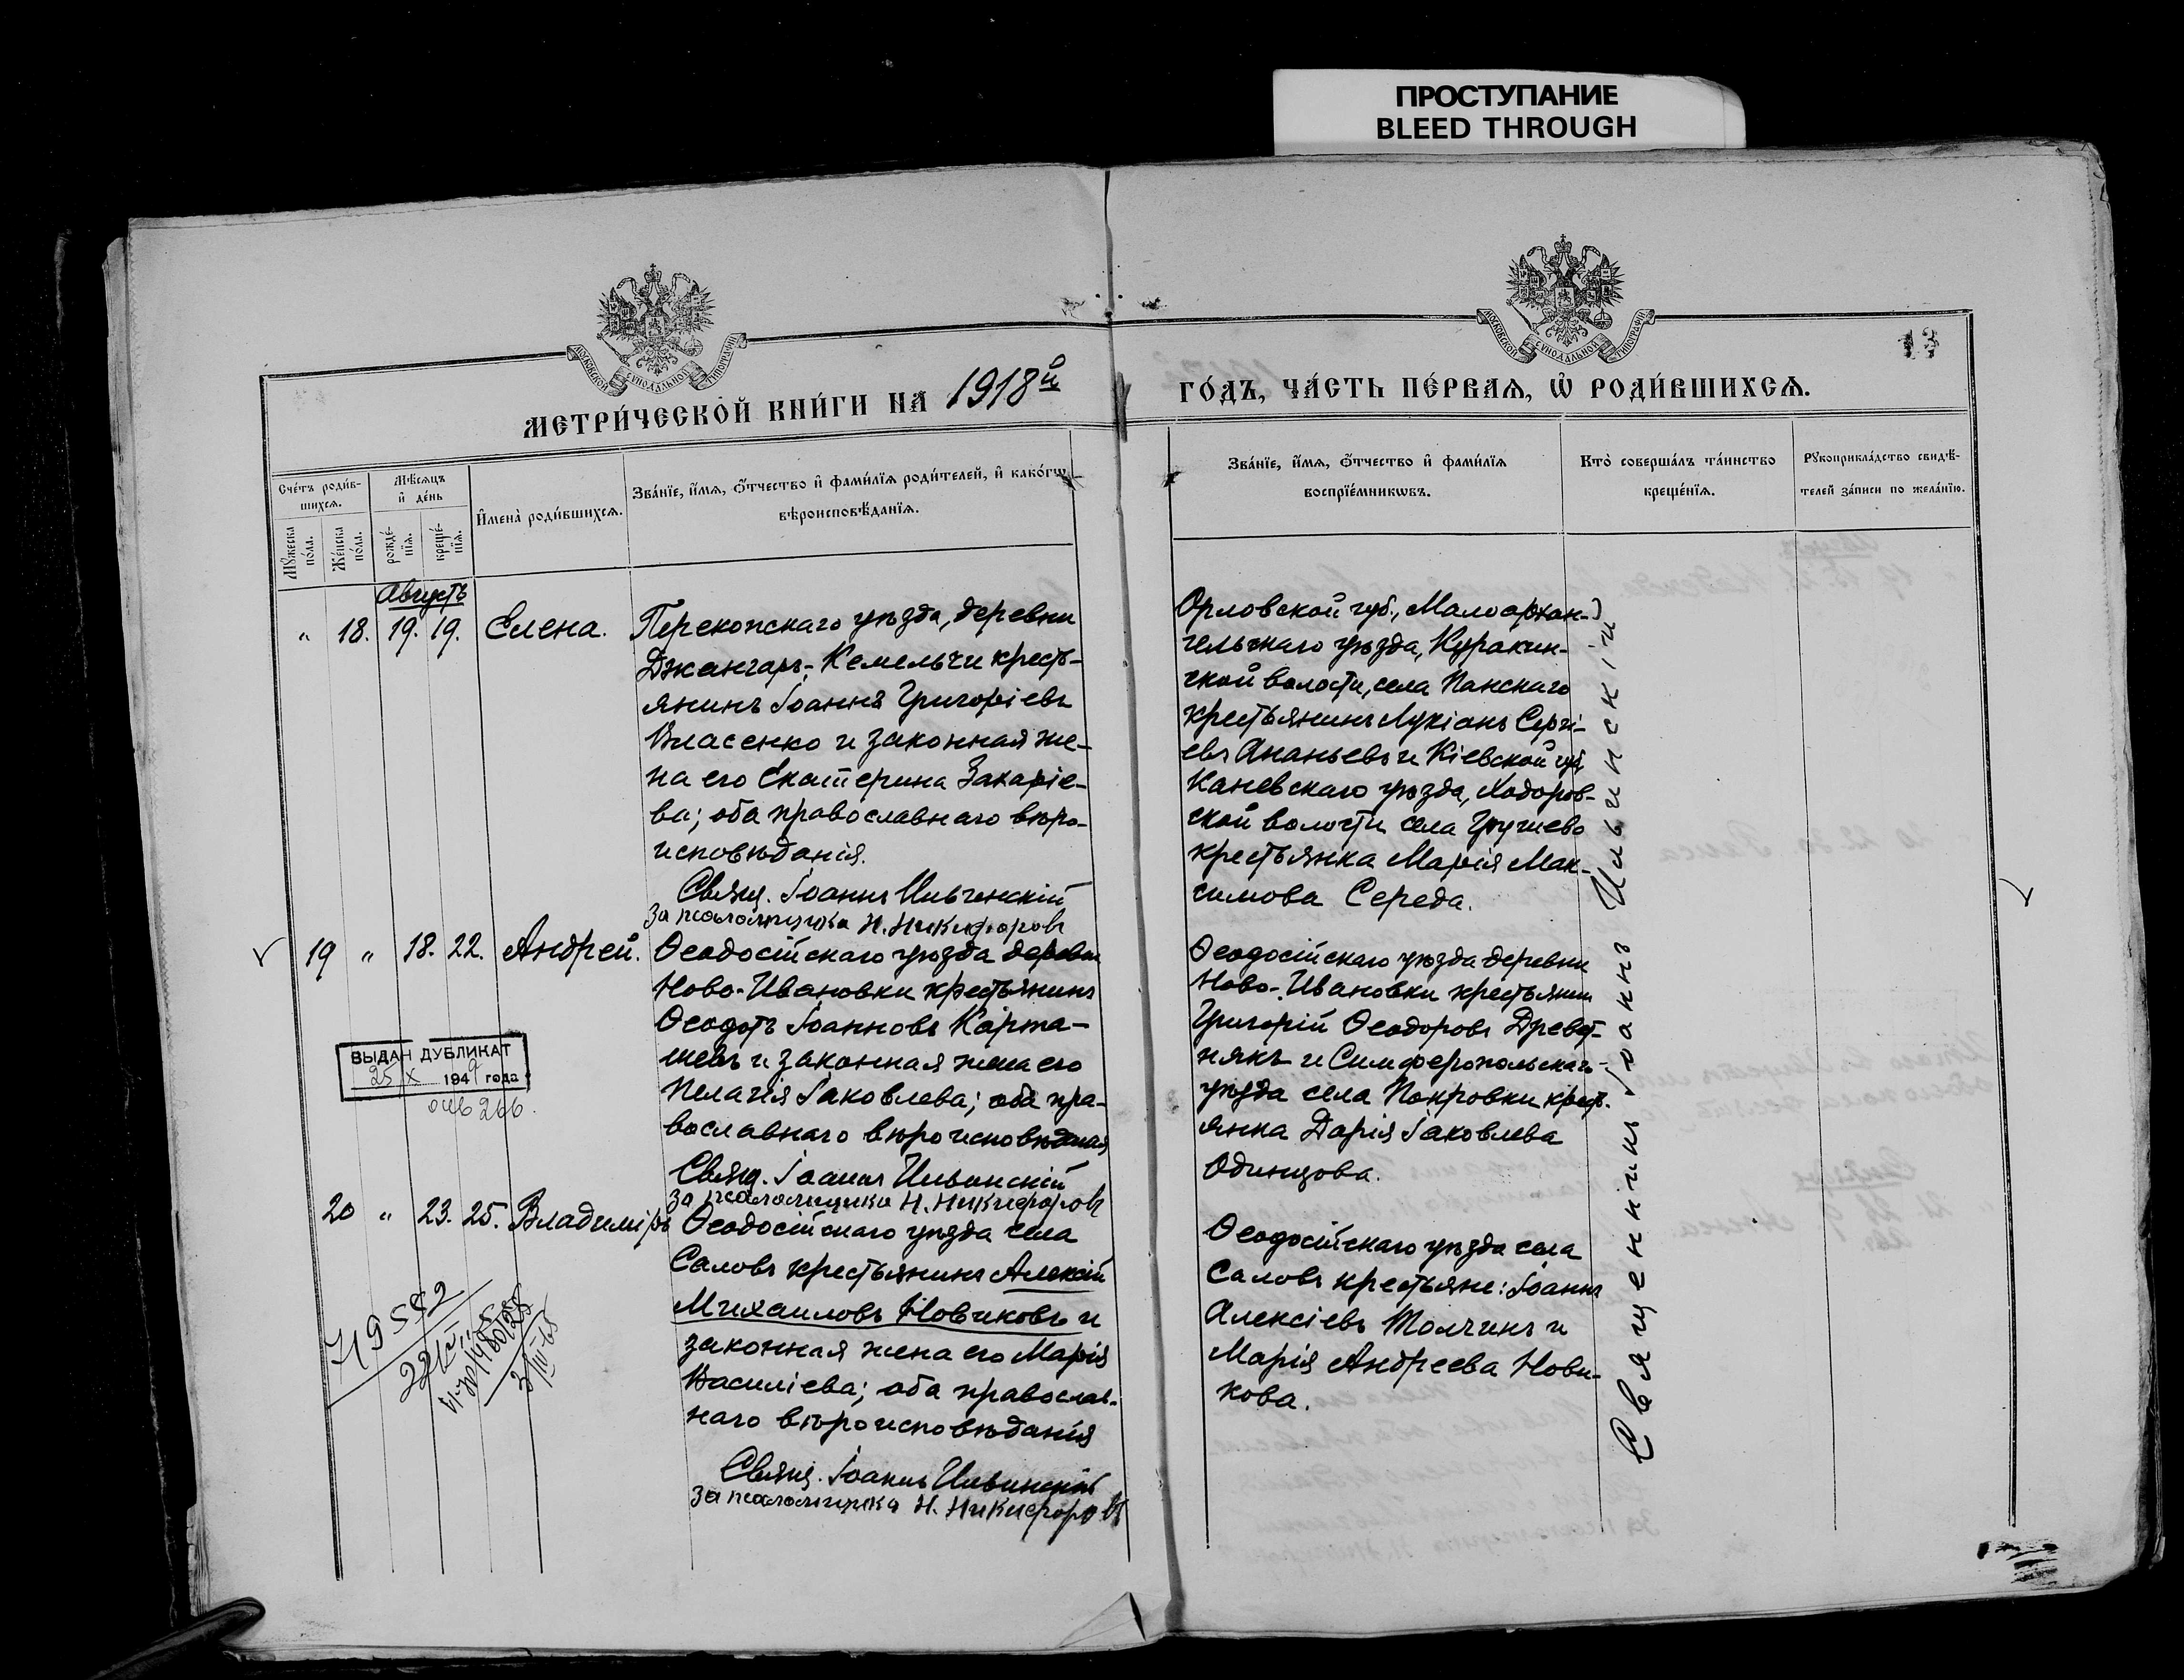 ПРОСТУПАНИЕ
BLEED THROUGH
МОСКОВСКОЙ СУНОДАЛЬНОЙ ТИПОГРАФІИ
МОСКОВСКОЙ СУНОДАЛЬНОЙ ТИПОГРАФІИ
13
МЕТРИ́ЧЕСКОЙ КНИ́ГИ НА 1918й
ГО́ДЪ, ЧА́СТЬ ПЕ́РВАѦ, Ѡ҆ РОДИ́ВШИХСѦ.
Сче́тъ роди́в-
шихсѧ.
Мꙋ́жеска по́ла.
Же́нска по́ла.
Мѣ́сѧцъ
и҆ де́нь
рожде́-
нїѧ.
креще́-
нїѧ.
И҆мена̀ роди́вшихсѧ.
Зва́нїе, и҆́мѧ, ѻ҆́тчество и҆ фами́лїѧ роди́телей, и҆ како́гѡ
вѣроисповѣ́данїѧ.
Зва́нїе, и҆́мѧ, ѻ҆́тчество и҆ фами́лїѧ
воспрїе́мникѡвъ.
Кто̀ соверша́лъ та́инство
креще́нїѧ.
Рꙋкоприкла́дство свидѣ́-
телей за́писи по жела́нїю.
Августъ
" 18. 19. 19. Елена.
Перекопскаго уѣзда, деревни
Джангаръ-Кемельчи кресть-
янинъ Іоаннъ Григоріевъ
Власенко и законная же-
на его Екатерина Захаріе-
ва; оба православнаго вѣро-
исповѣданія.
Свящ. Іоаннъ Ильинскій
За псаломщика Н. Никифоровъ
Орловской губ., Малоархан-
гельскаго уѣзда, Куракин-
ской волости, села Панскаго
крестьянинъ Лукіанъ Сергі-
евъ Ананьевъ и Кіевской губ.
Каневскаго уѣзда, Ходоров-
ской волости села Грушево
крестьянка Марія Мак-
симова Середа.
19 " 18. 22. Андрей.
Ѳеодосійскаго уѣзда деревни
Ново-Ивановки крестьянинъ
Ѳеодотъ Іоанновъ Карта-
шевъ и законная жена его
Пелагія Іаковлева; оба пра-
вославнаго вѣроисповѣданія
Свящ. Іоаннъ Ильинскій
За псаломщика Н. Никифоровъ
Ѳеодосійскаго уѣзда деревни
Ново-Ивановки крестьянинъ
Григорій Ѳеодоровъ Древет-
някъ и Симферопольскаго
уѣзда села Покровки крест-
янка Дарія Іаковлева
Одинцова.
ВЫДАН ДУБЛИКАТ
25 X 1949 года
266.
20 " 23. 25. Владиміръ
Ѳеодосійскаго уѣзда села
Саловъ крестьянинъ Алексій
Михаиловъ Новиковъ и
законная жена его Марія
Василіева; оба православ-
наго вѣроисповѣданія
Свящ. Іоаннъ Ильинскій
За псаломщика Н. Никифоровъ
Ѳеодосійскаго уѣзда села
Саловъ крестьяне: Іоаннъ
Алексіевъ Толчинъ и
Марія Андреева Нови-
кова.
Священникъ Іоаннъ Ильинскій